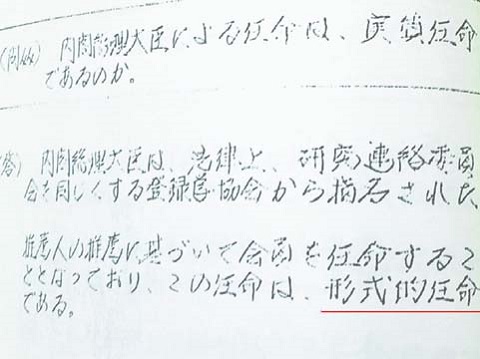 (問46) 内閣総理大臣による任命は、実質任命
であるのか。
答) 内閣総理大臣は、法律上、研究連絡委員
会を同じくする登録学協会から指名された
推薦人の推薦に基づいて会員を任命するこ
ととなっており、この任命は、形式的任命
である。